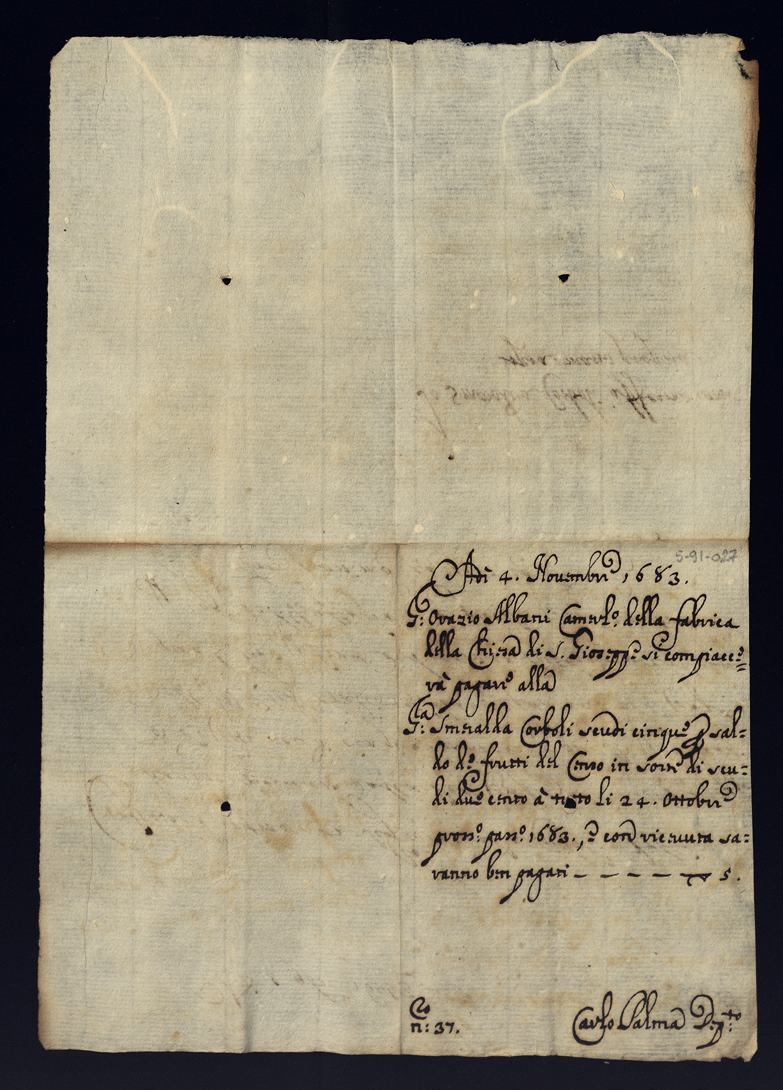 5-91-027
Adi 4. Novembre 1683.
S.r Orazio Albani Camerl.o della fabrica
della Chiesa di S. Gioseppe si compiace=
rà pagare alla
S.ra Smeralda Corboli scudi cinque p sal=
do de frutti del Censo in sorte di scu=
di due cento à tutto li 24. Ottobre
pross.o pass.o 1683., e con ricevuta sa=
ranno ben pagati — — — — 5.
n: 37.
Carlo Palma Dep.to